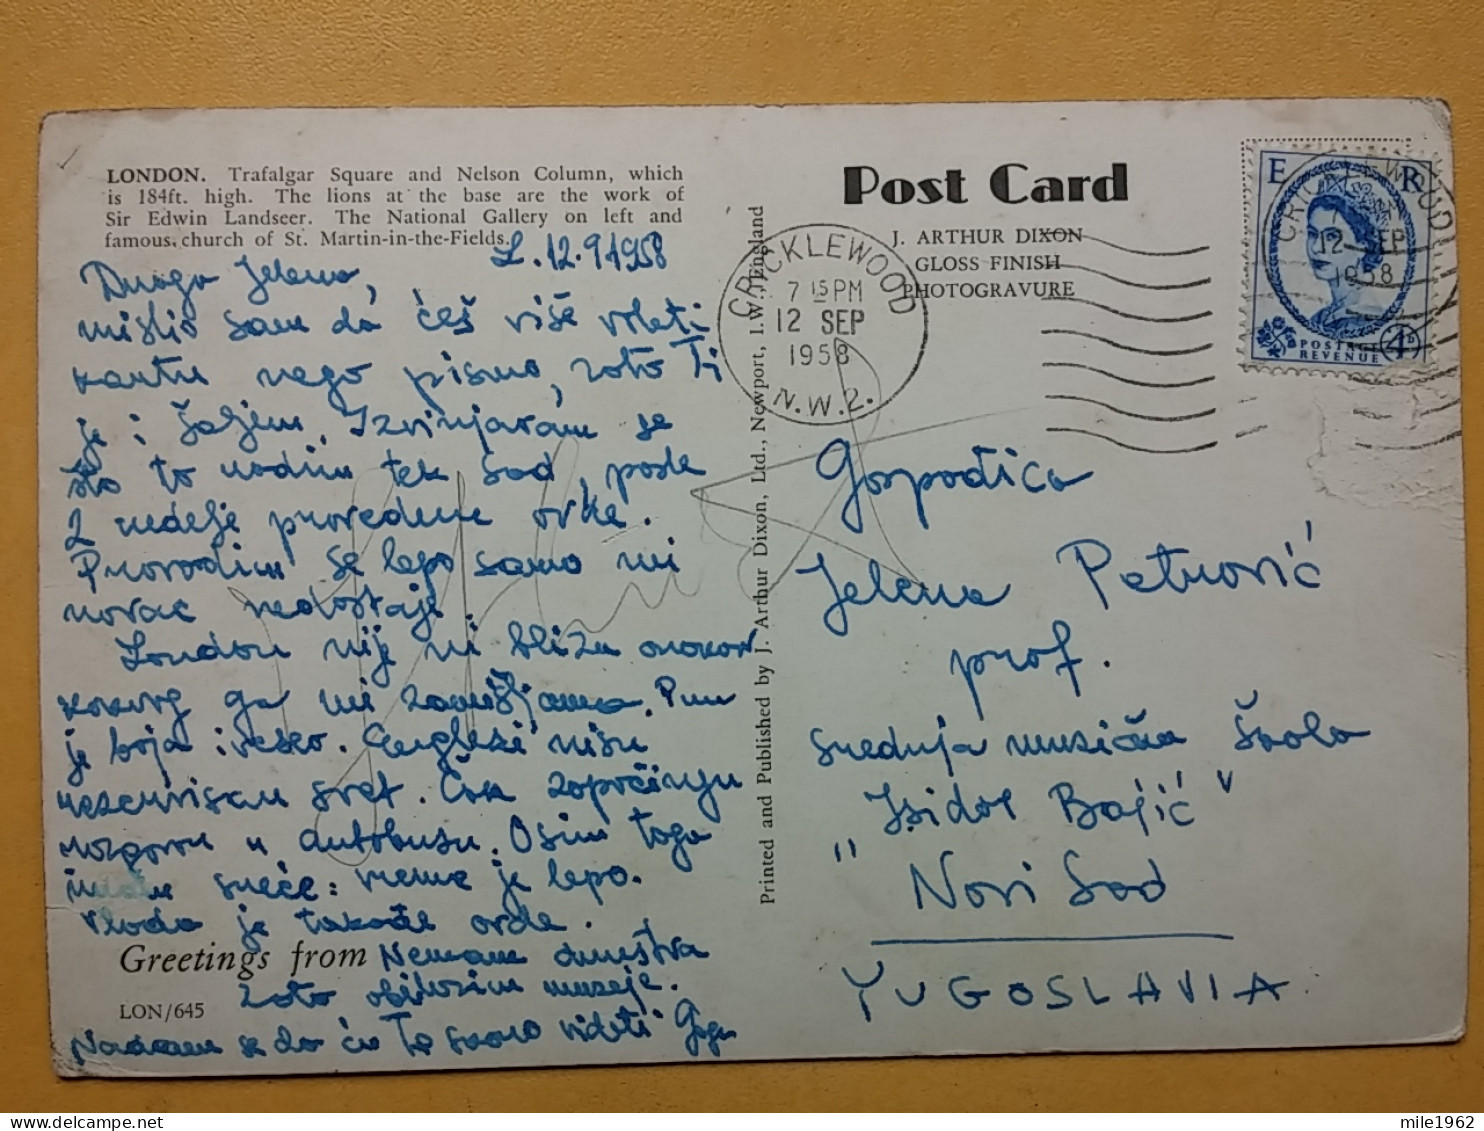 LONDON. Trafalgar Square and Nelson Column, which
is 184ft. high. The lions at the base are the work of
Sir Edwin Landseer. The National Gallery on left and
famous church of St. Martin-in-the-Fields.
L. 12.9.1958
Draga Jelena,
mislio sam da ćeš više voleti
kartu nego pismo, zato Ti
je i šaljem. Izvinjavam se
što to radim tek sad, posle
2 nedelje provedene ovde.
Provodim se lepo samo mi
novac nedostaje.
London nije ni blizu onakav
kakvog ga mi zamišljamo. Pun
je boja i veseo. Englezi nisu
rezervisan svet. Čak započinju
razgovor u autobusu. Osim toga
imam sreće: vreme je lepo.
Vlada je takođe ovde.
Greetings from
Nemam društva
zato obilazim muzeje.
LON/645
Nadam se da ću Te skoro videti Goga
Printed and Published by J. Arthur Dixon, Ltd., Newport, I.W., England
Post Card
J. ARTHUR DIXON
GLOSS FINISH
PHOTOGRAVURE
CRICKLEWOOD
7 15 PM
12 SEP
1958
N.W.2.
E R
POSTAGE
REVENUE
4D
CRICKLEWOOD
12 SEP
1958
Gospođica
Jelena Petrović
prof.
srednja muzička škola
"Isidor Bajić"
Novi Sad
YUGOSLAVIA
mile1962